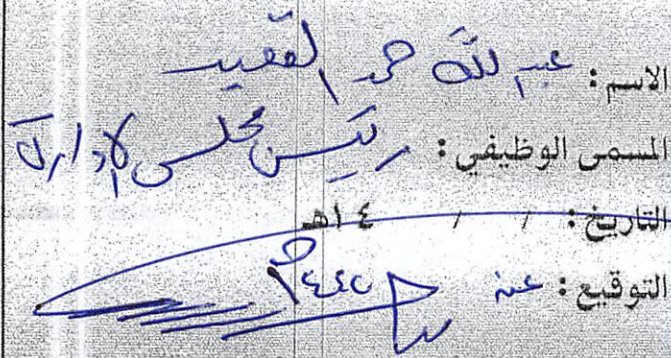 الاسم: عبدالله حمد الفقيد
المسمى الوظيفي: رئيس مجلس الإدارة
التاريخ: / / ١٤هـ
التوقيع: عنه